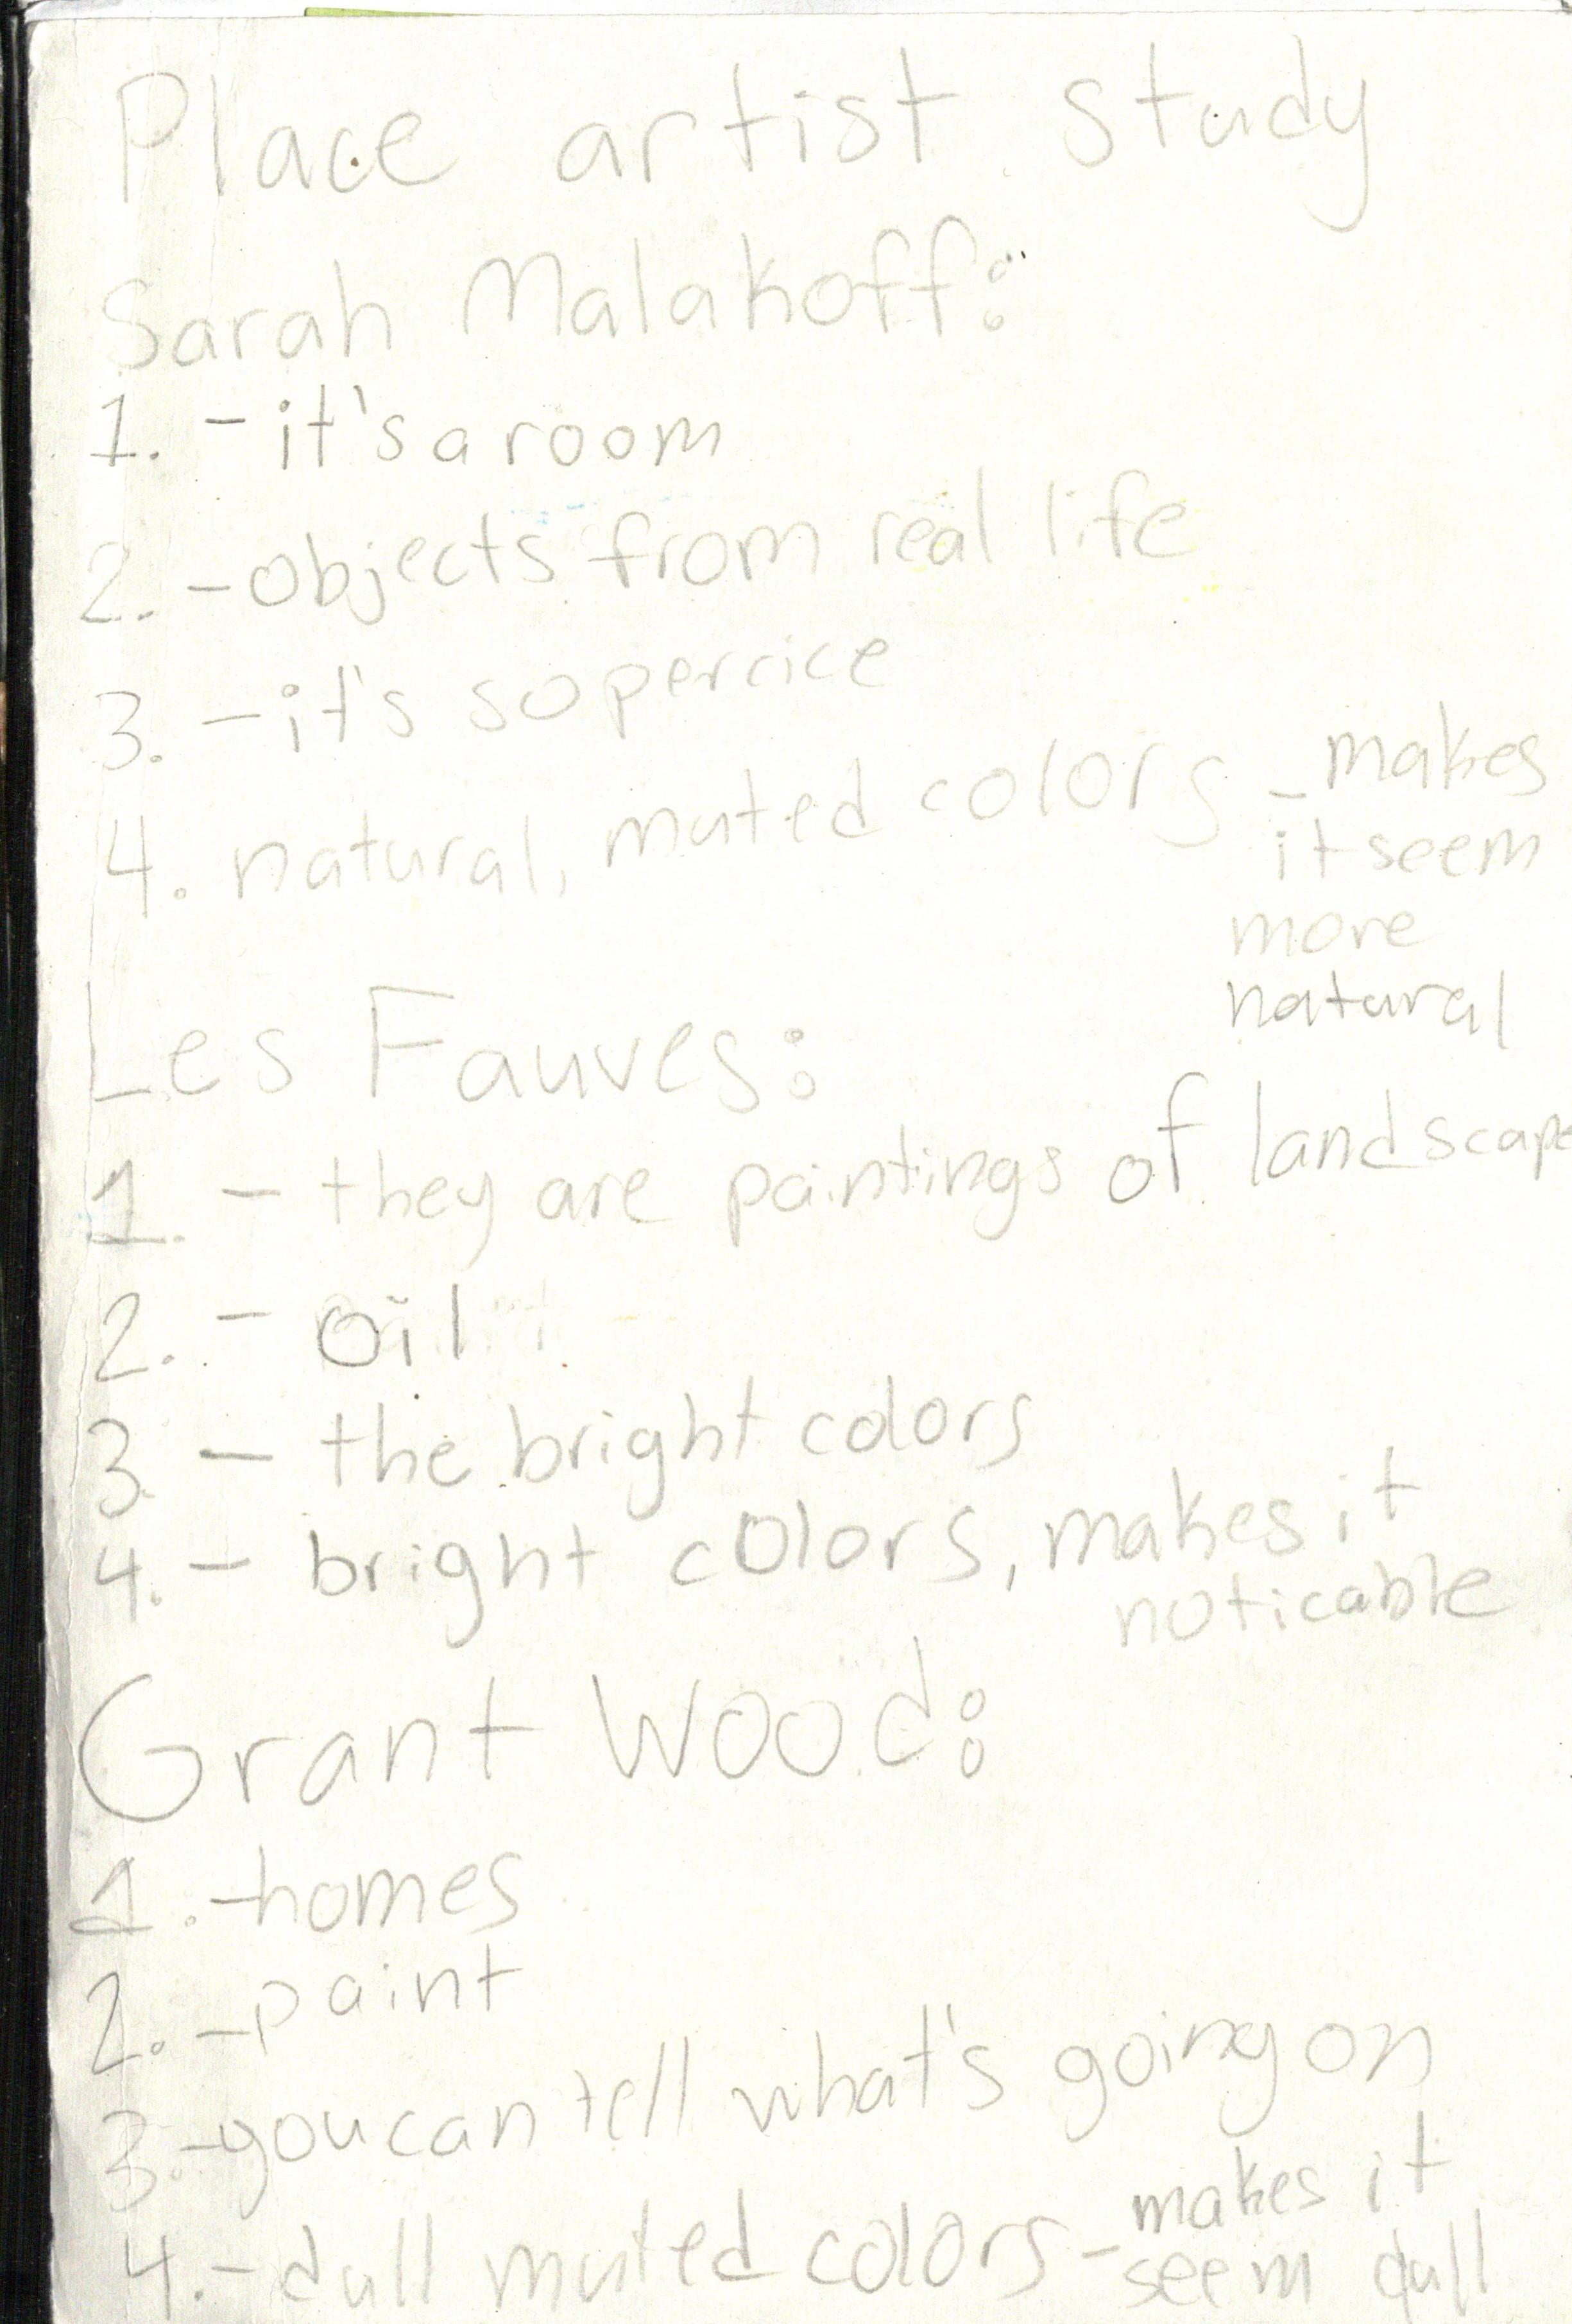 Place artist study
Sarah Malakoff:
1. - it's a room
2. - objects from real life
3. - it's so percice
4. natural, muted colors - makes
it seem
more
natural
Les Fauves:
1. - they are paintings of landscape
2. - oil
3. - the bright colors
4. - bright colors, makes it
noticable
Grant Wood:
1. - homes
2. - paint
3. - you can tell what's going on
4. - dull muted colors - makes it
seem dull